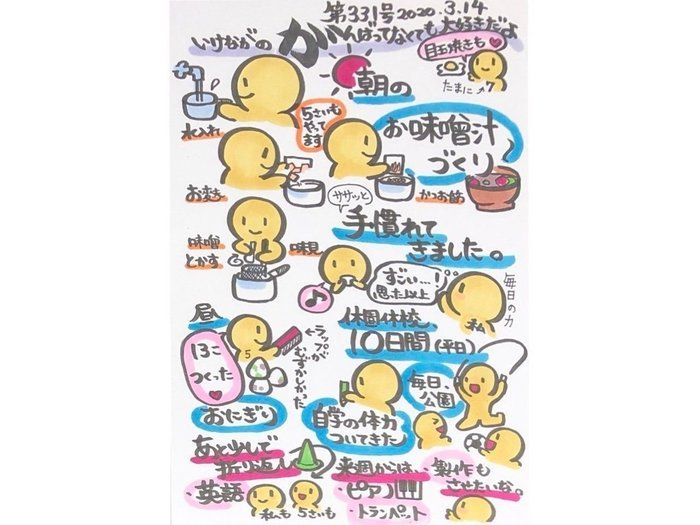 第331号 2020.3.14
いけながの がんばってなくても大好きだよ
目玉焼きも
たまに
朝の
お味噌汁
づくり
水入れ
5さいも
やって
ます
お麩を
かつお節
ササッと
手慣れて
きました。
味噌
とかす
味見
すごい…!
思った以上
毎日の力
私
昼
13こ
つくった
5
ラップが
むずかしかった
おにぎり
休園休校
10日間(平日)
毎日、
公園
自学の体力
ついてきた
あと少しで
折り返し
英語
私も
5さいも
来週からは、
ピアノ
トランペット
製作も
させたいな。